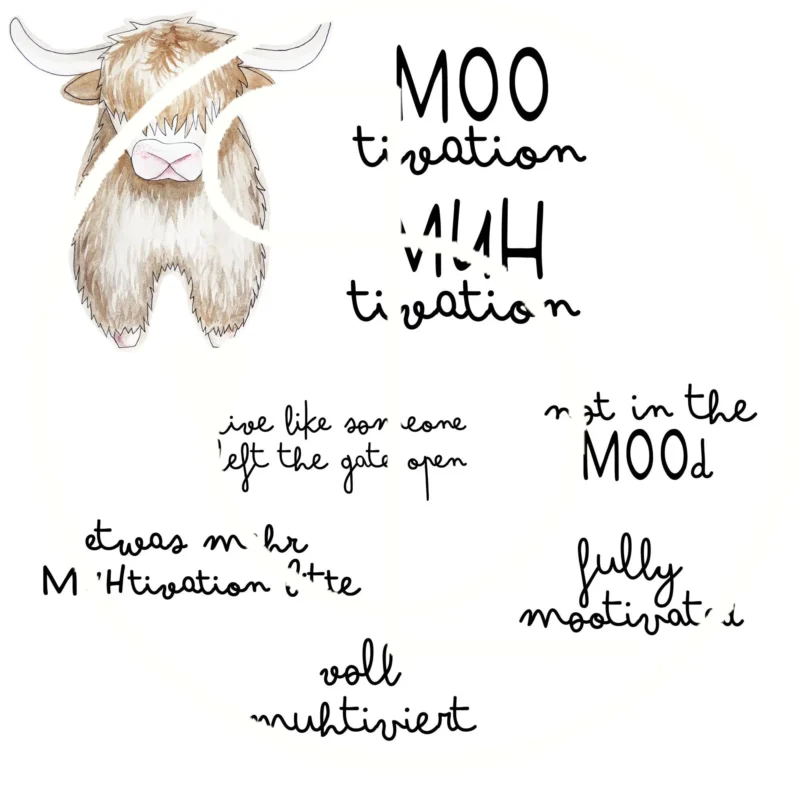 MOO
tivation
MUH
tivation
live like someone
left the gate open
not in the
MOOd
etwas mehr
MUHtivation bitte
fully
mootivated
voll
muhtiviert